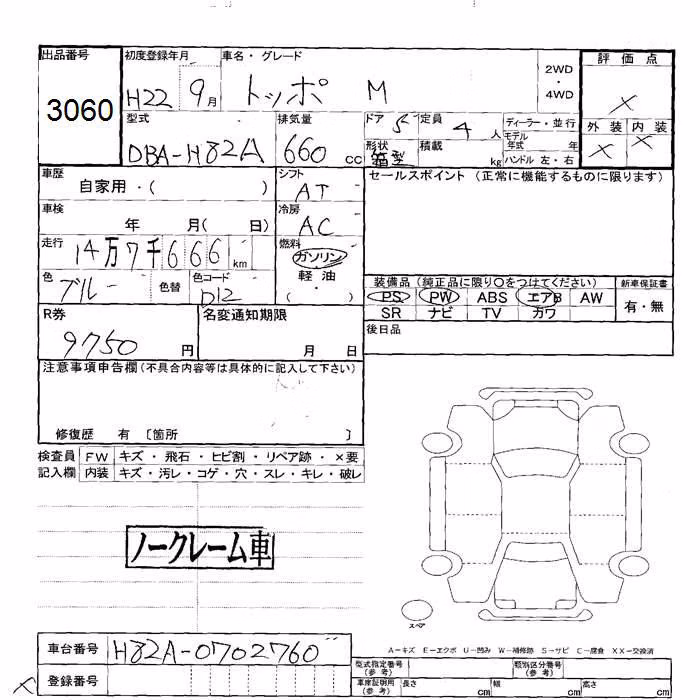 出品番号 初度登録年月 車名・グレード 評価点
3060 H22 9月 トッポ M 2WD ・ 4WD ×
型式 排気量 ドア 5 定員 4人 ディーラー・並行 外装 内装
DBA-H82A 660 cc 形状 箱型 積載 kg モデル年式 年 × ×
ハンドル 左・右
車歴 自家用・( ) シフト AT セールスポイント (正常に機能するものに限ります)
車検 年 月( 日) 冷房 AC
走行 14万7千666km 燃料 ガソリン
色 ブルー 色替 色コード D12 軽油・( )
装備品(純正品に限り○をつけてください) 新車保証書
PS PW ABS エアB AW 有・無
SR ナビ TV カワ
R券 9750円 名変通知期限 月 日 後日品
注意事項申告欄(不具合内容等は具体的に記入して下さい)
修復歴 有 〔箇所 〕
検査員 FW キズ・飛石・ヒビ割・リペア跡・×要
記入欄 内装 キズ・汚レ・コゲ・穴・スレ・キレ・破レ
ノークレーム車
スペア
A-キズ E-エクボ U-凹み W-補修跡 S-サビ C-腐食 XX-交換済
車台番号 H82A-0702760 型式指定番号(参考) 類別区分番号(参考)
× 登録番号 車庫証明用(参考) 長さ cm 幅 cm 高さ cm